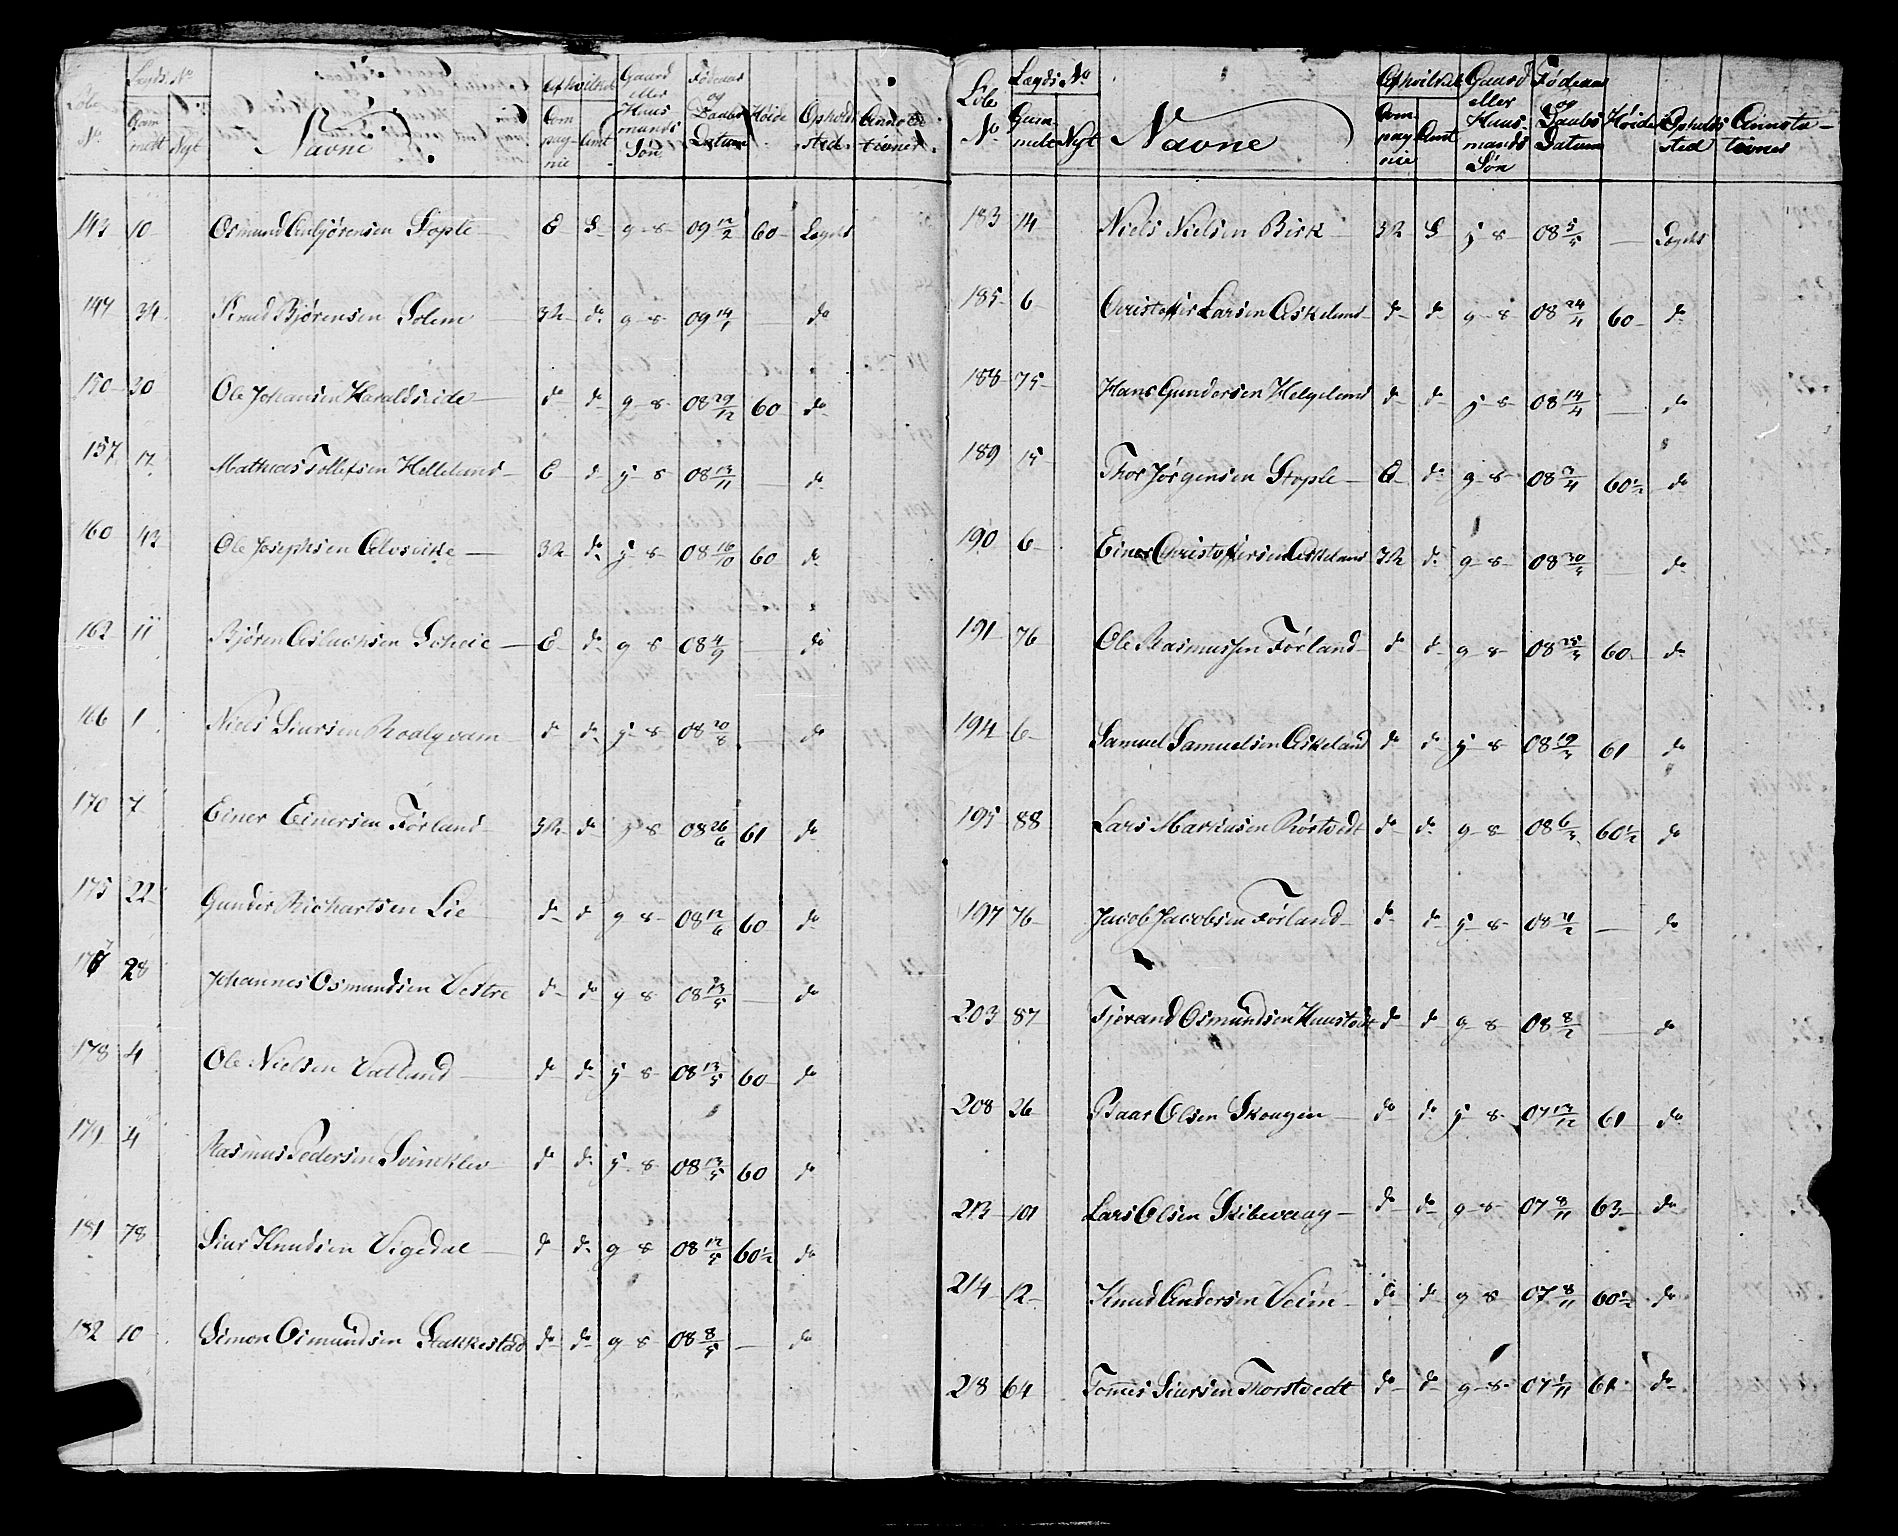 Løbe No | Lægds No Gammelt | Nyt | Navne | Af hvilket Compagnie | Amt | Gaard eller Huusmands Søn | Fødeaar og Daabs Datum | Høide | Opholdsted | Annotationer
143 10 Osmund Anbjørensen Stople E S g s 09 12/2 60 Lægds
147 34 Knud Bjørensen Solem 3R do g s 09 14/1 — do
150 20 Ole Johansen Haraldseide do do g s 08 29/12 60 do
157 17 Mathias Tollefsen Helleland E do j s 08 13/11 — do
160 43 Ole Josephsen Alvsvike 3R do j s 08 16/10 60 do
162 11 Bjøren Aslachsen Scheie E do g s 08 4/9 — do
166 1 Niels Siursen Roalqvam do do j s 08 20/8 — do
170 7 Einer Einersen Førland 3R do j s 08 26/6 61 do
175 22 Gunder Richartsen Lie do do g s 08 12/6 60 do
177 28 Johannes Osmundsen Vestre do do g s 08 13/5 — do
178 4 Ole Nielsen Vatland do do j s 08 13/5 60 do
179 4 Rasmus Pedersen Svineklev do do j s 08 13/5 60 do
181 78 Siur Knudsen Vigedal do do g s 08 12/5 60½ do
182 10 Simon Osmundsen Stakkestad do do g s 08 8/5 — do
Løbe No | Lægds No Gammelt | Nyt | Navne | Af hvilket Compagnie | Amt | Gaard eller Huusmands Søn | Fødeaar og Daabs Datum | Høide | Opholdsted | Annotationer
183 14 Niels Nielsen Birk 3R S j s 08 5/5 — Lægds
185 6 Christoffer Larsen Askeland do do g s 08 24/4 60 do
188 75 Hans Gundersen Helgeland do do j s 08 14/4 — do
189 15 Thor Jørgensen Stople E do g s 08 3/4 60½ do
190 6 Einer Christoffersen Askeland 3R do g s 08 30/3 — do
191 76 Ole Rasmussen Førland do do g s 08 25/3 60 do
194 6 Samuel Samuelsen Askeland do do j s 08 19/3 61 do
195 88 Lars Mariusen Rørtvedt do do g s 08 6/3 60½ do
197 76 Jacob Jacobsen Førland do do j s 08 11/2 — do
203 87 Tjerand Osmundsen Huustoft do do g s 08 8/2 — do
208 26 Baar Olsen Skougen do do j s 07 13/12 61 do
213 101 Lars Olsen Skibevaag do do g s 07 8/11 63 do
214 12 Knud Andersen Veim do do g s 07 8/11 60½ do
218 64 Tomes Siursen Thorstvedt do do g s 07 1/11 61 do